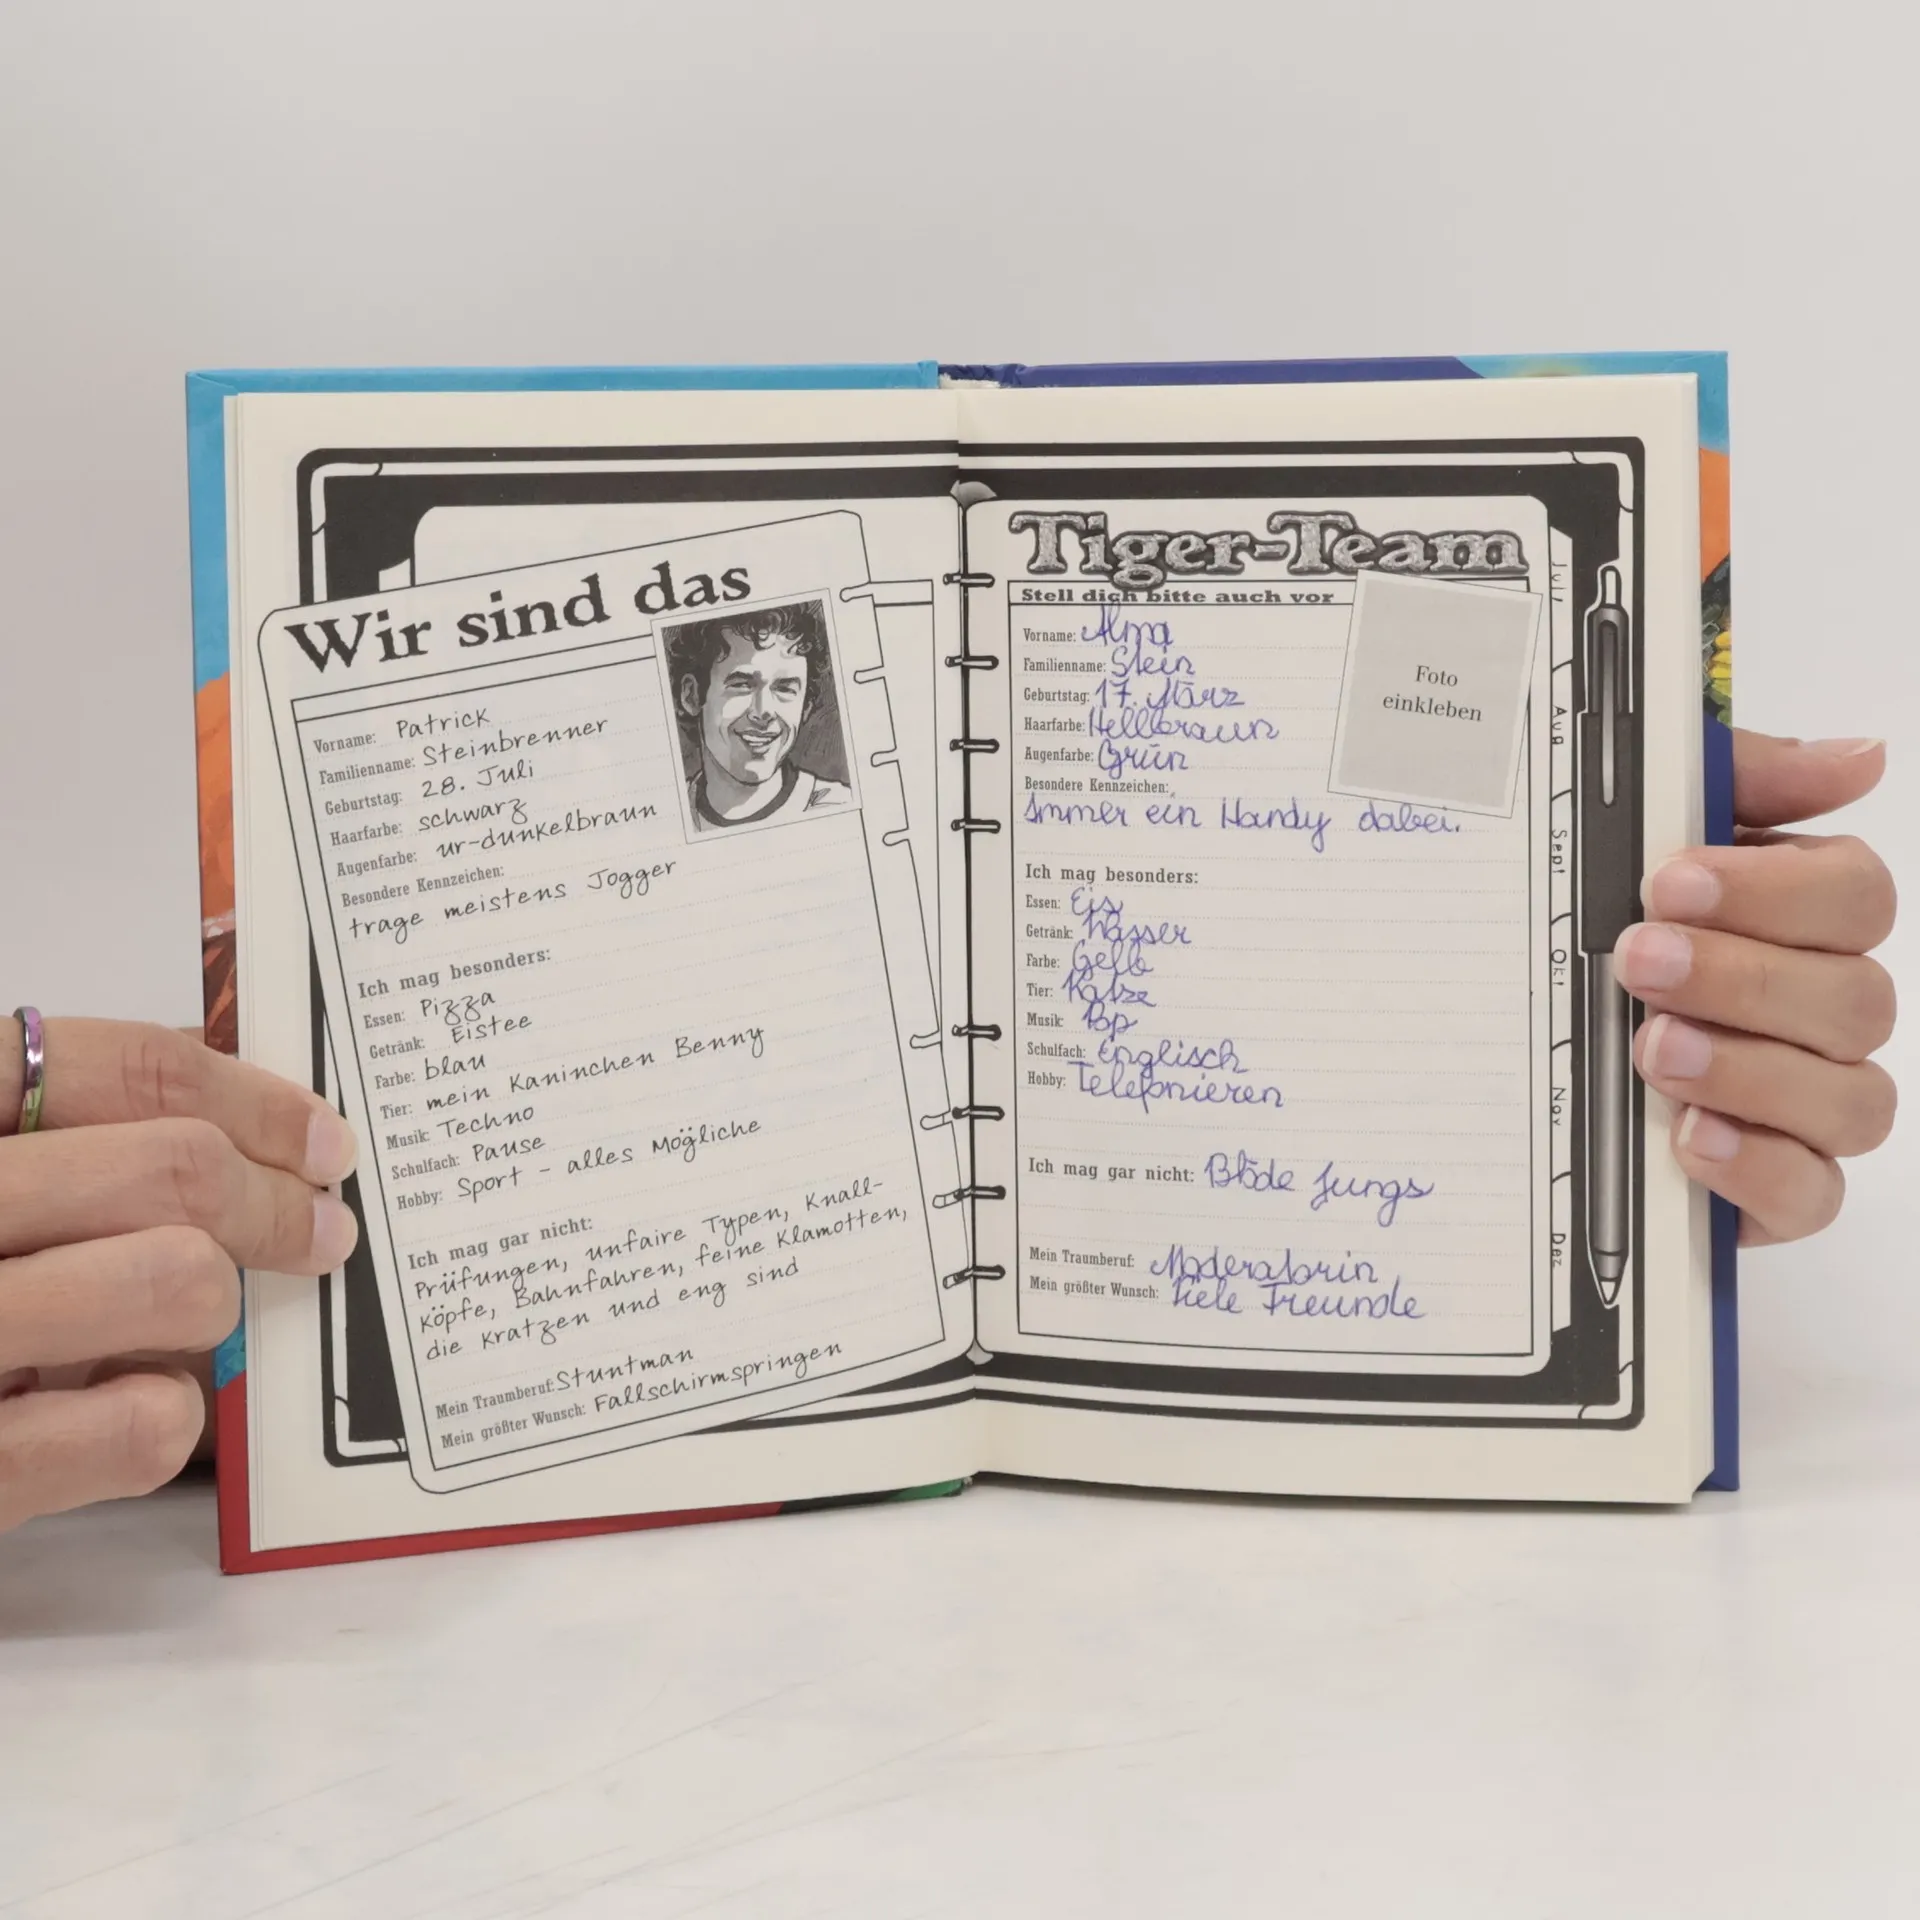 Wir sind das
Vorname: Patrick
Familienname: Steinbrenner
Geburtstag: 28. Juli
Haarfarbe: schwarz
Augenfarbe: ur-dunkelbraun
Besondere Kennzeichen:
trage meistens Jogger
Ich mag besonders:
Essen: Pizza
Getränk: Eistee
Farbe: blau
Tier: mein Kaninchen Benny
Musik: Techno
Schulfach: Pause
Hobby: Sport - alles Mögliche
Ich mag gar nicht:
Prüfungen, unfaire Typen, Knall-
köpfe, Bahnfahren, feine Klamotten,
die kratzen und eng sind
Mein Traumberuf: Stuntman
Mein größter Wunsch: Fallschirmspringen
Tiger-Team
Stell dich bitte auch vor
Foto
einkleben
Vorname: Alma
Familienname: Stein
Geburtstag: 17. März
Haarfarbe: Hellbraun
Augenfarbe: Grün
Besondere Kennzeichen:
Immer ein Handy dabei.
Ich mag besonders:
Essen: Eis
Getränk: Wasser
Farbe: Gelb
Tier: Katze
Musik: Pop
Schulfach: Englisch
Hobby: Telefonieren
Ich mag gar nicht: Blöde Jungs
Mein Traumberuf: Moderatorin
Mein größter Wunsch: Viele Freunde
Juli
Aug
Sept
Okt
Nov
Dez